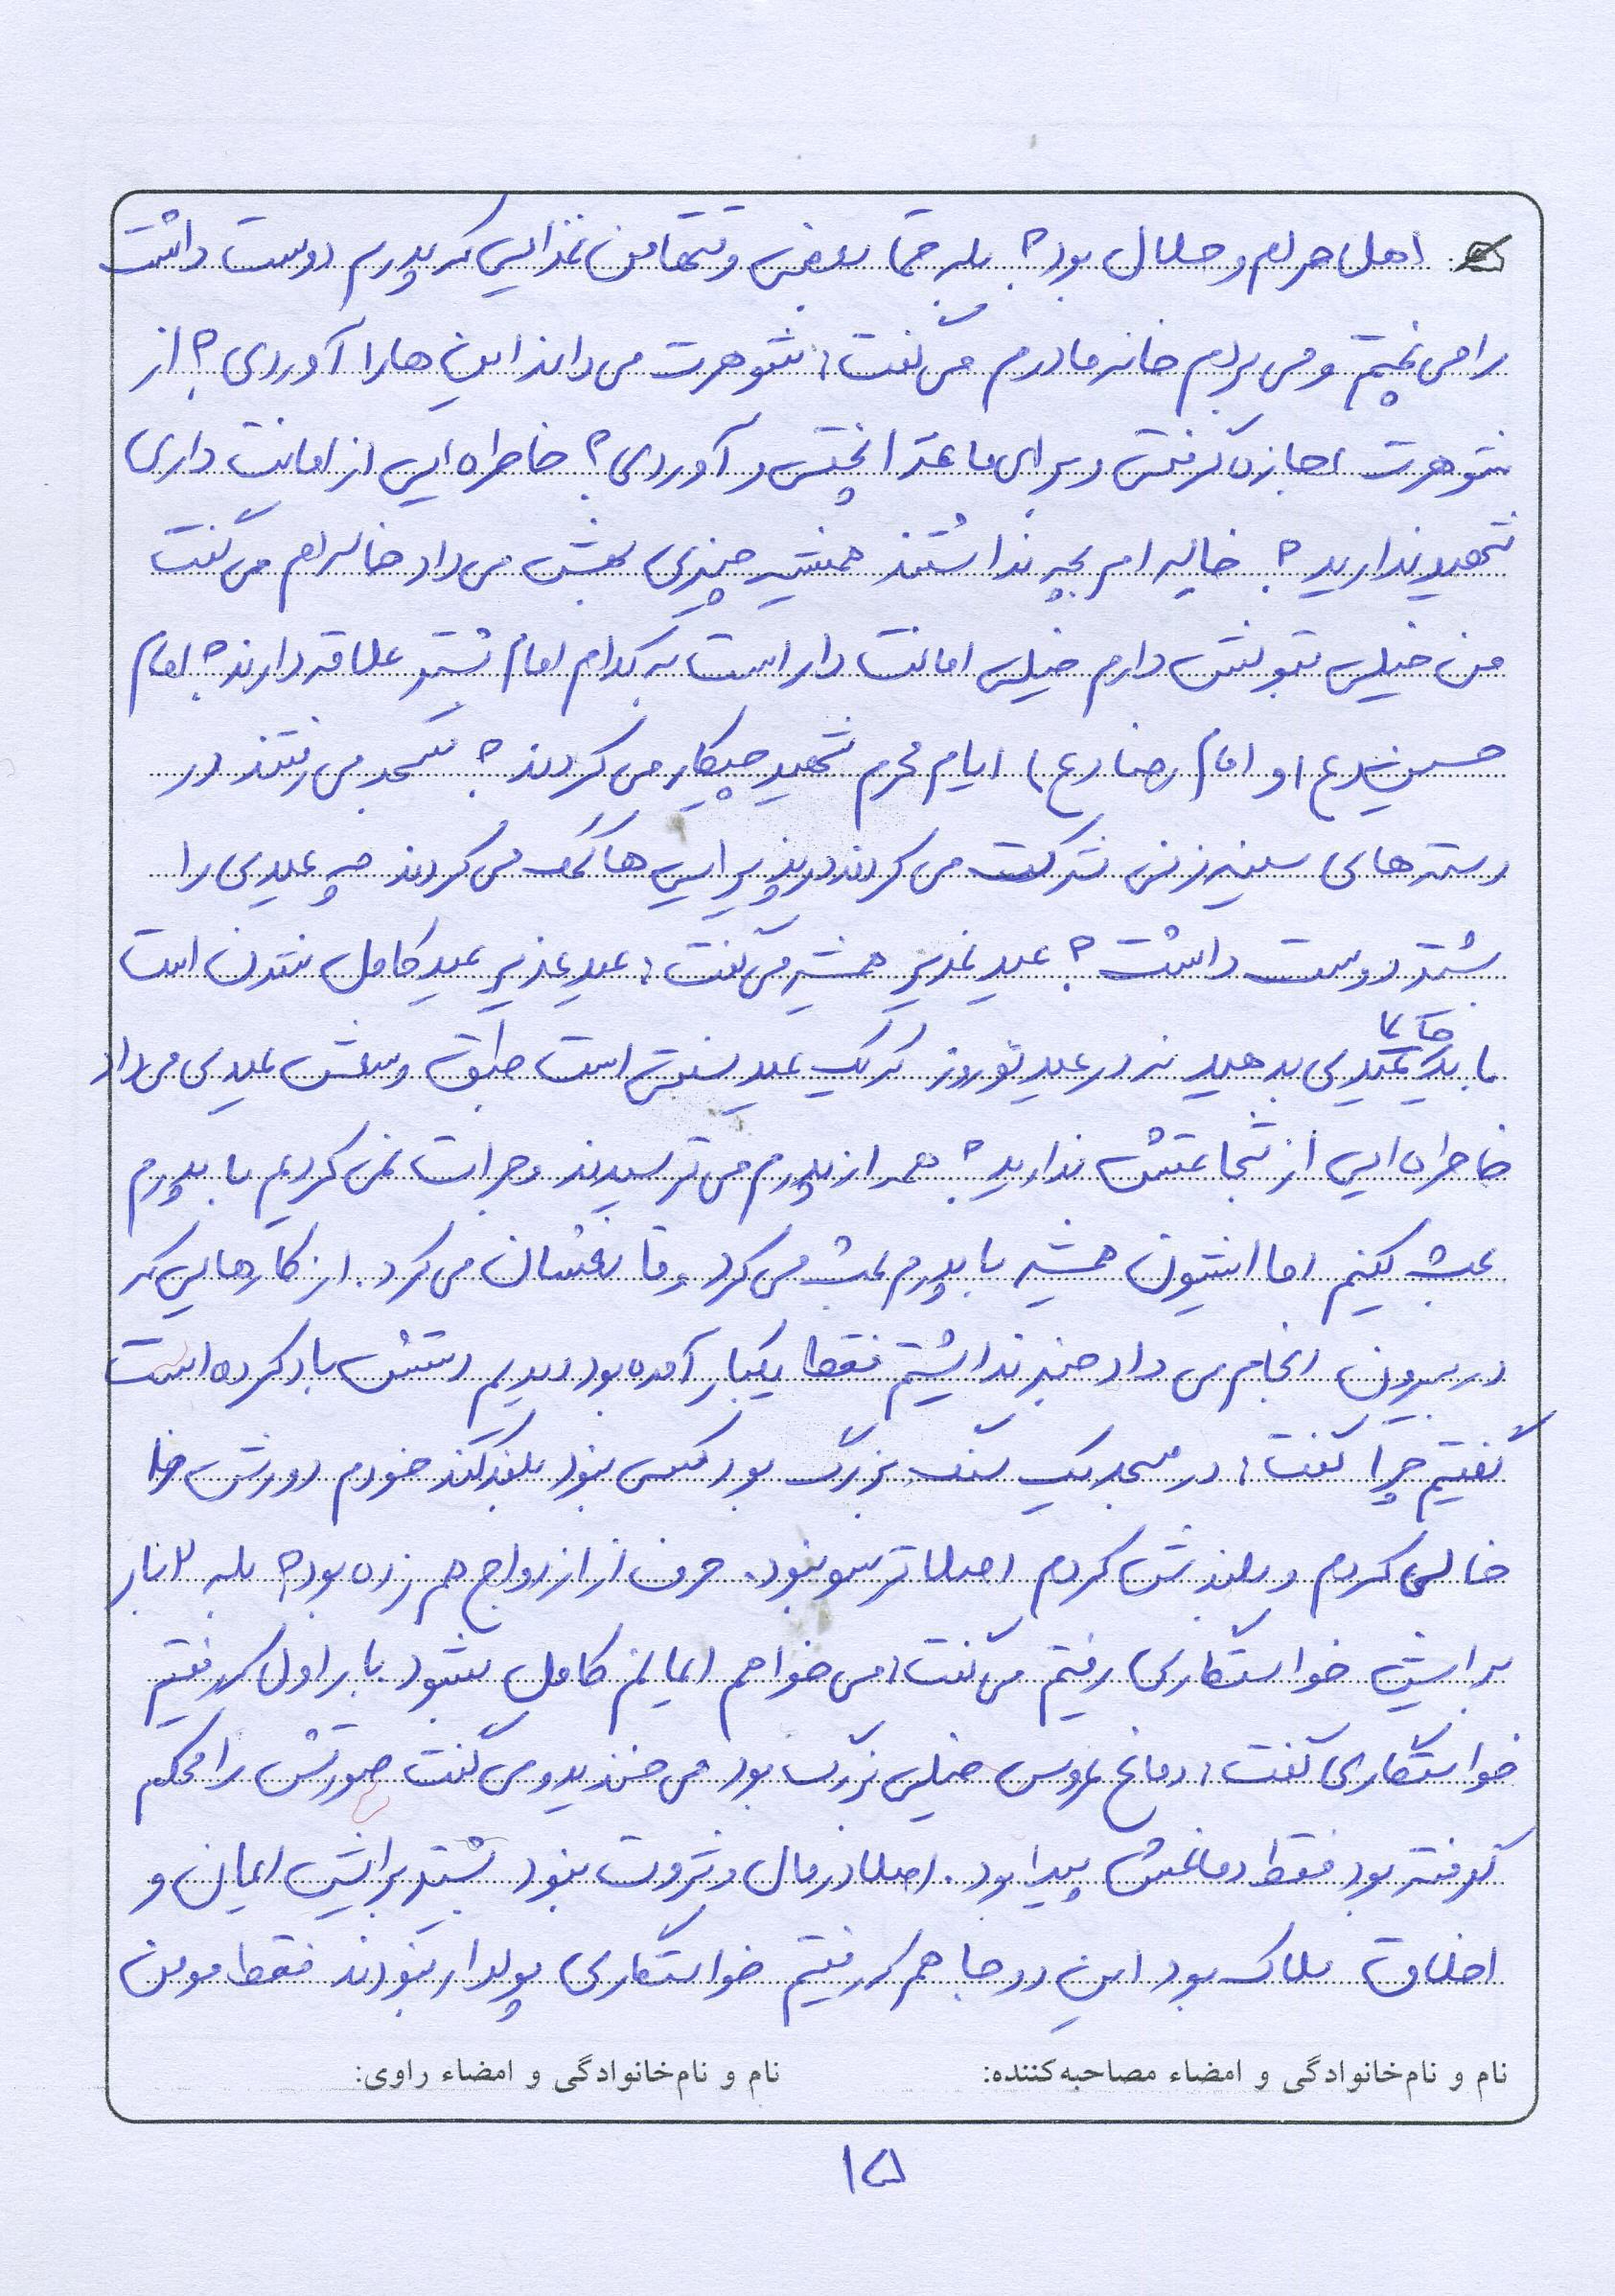 اهل حرام و حلال بود؟ بله حتما بعضی وقتها من غذایی که پدرم دوست داشت
را می پختم و می بردم خانه مادرم می گفت: شوهرت می داند این ها را آوردی؟ از
شوهرت اجازه گرفتی و برای ما غذا پختی و آوردی؟ خاطره ایی از امانت داری
شهید ندارید؟ خاله ام بچه نداشتند همیشه چیزی بهش می داد خاله ام می گفت
من خیلی قبولش دارم خیلی امانت دار است به کدام امام بیشتر علاقه دارند؟ امام
حسین (ع) و امام رضا (ع) ایام محرم شهید چیکار می کردند؟ مسجد می رفتند در
دسته های سینه زنی شرکت می کردند در پذیرایی ها کمک می کردند چه عیدی را
بیشتر دوست داشت؟ عید غدیر همیشه می گفت: عید غدیر عید کامل شدن است
ما باید عیدی بدهید نه در عید نوروز که یک عید سنتی است طبق وسعش عیدی می داد
خاطره ایی از شجاعتش ندارید؟ همه از پدرم می ترسیدند و جرات نمی کردیم با پدرم
بحث بکنیم اما ایشون همیشه با پدرم بحث می کرد و قانعشان می کرد. از کارهایی که
در بیرون انجام می داد خبر نداشتیم فقط یکبار آمده بود دیدیم دستش باد کرده است
گفتیم چرا گفت: در مسجد یک سنگ بزرگ بود کسی نبود بلند کند خودم دورش را
خالی کردم و بلندش کردم اصلا ترسو نبود. حرف از ازدواج هم زده بود؟ بله ۲ بار
برایش خواستگاری رفتیم می گفت: می خواهم ایمانم کامل بشود بار اول که رفتیم
خواستگاری گفت: دماغ عروس خیلی بزرگ بود می خندید و می گفت صورتش را محکم
گرفته بود فقط دماغش پیدا بود. اصلا در مال و ثروت نبود بیشتر برایش ایمان و
اخلاق ملاک بود این دو جا هم که رفتیم خواستگاری پولدار نبودند فقط مومن
نام و نام‌خانوادگی و امضاء مصاحبه‌کننده: نام و نام‌خانوادگی و امضاء راوی:
۱۵